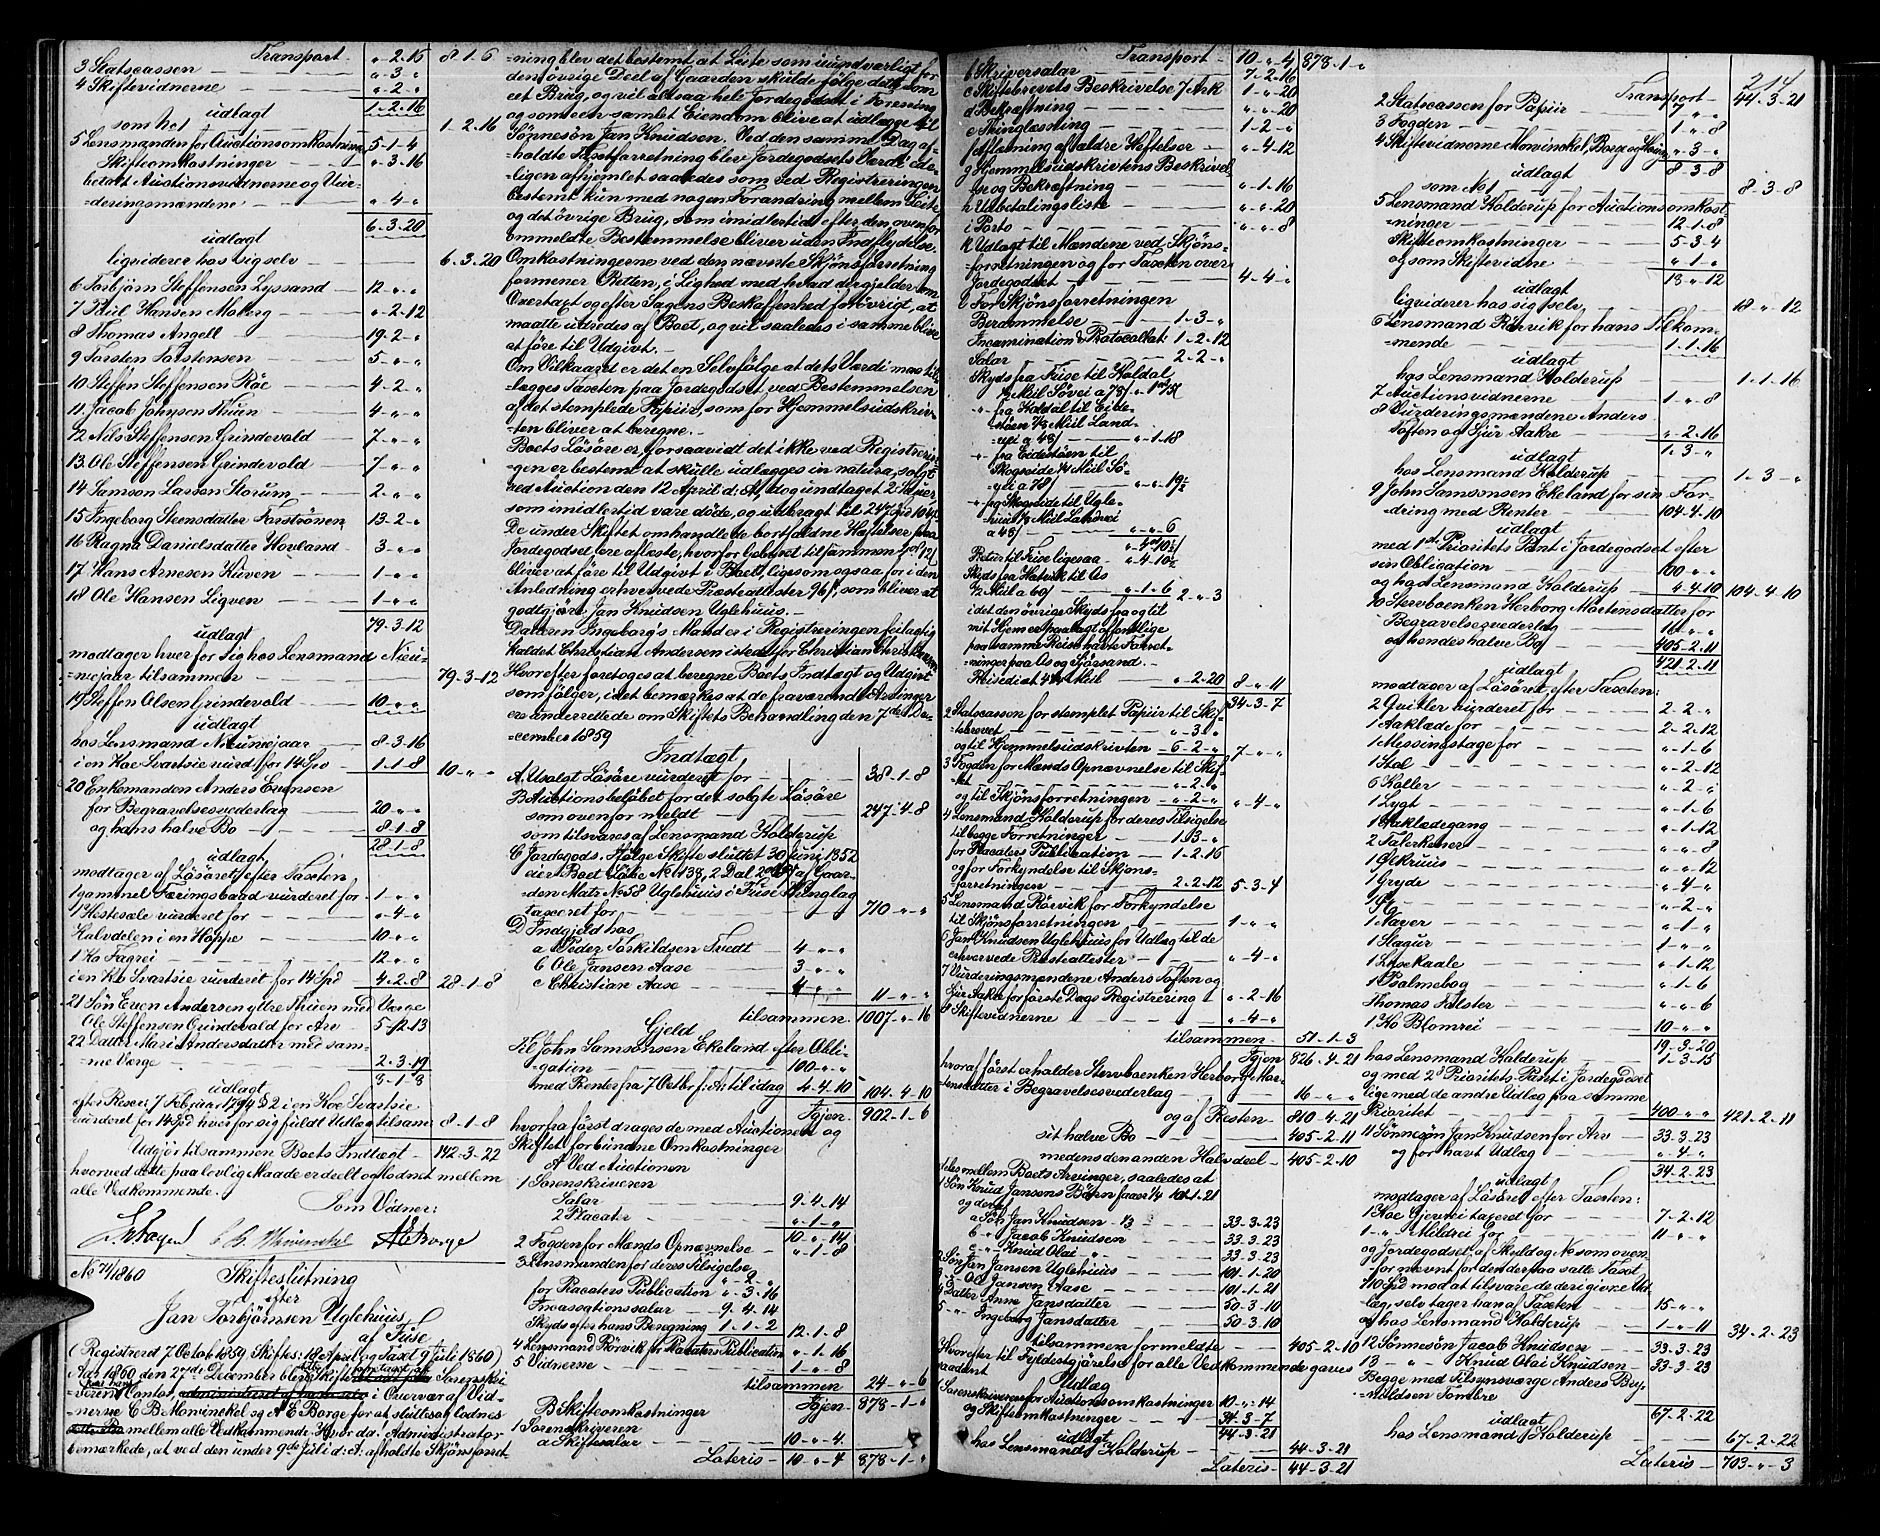 Transport - „-2-15 8-1-6
3 Statscassen - „-3-„
4 Skiftevidnerne - „-2-„
1-2-16
udlagt
som No 1 1-2-16
5 Lensmanden for Auctionsomkostninger 5-1-4
Skifteomkostninger - „-3-16
betalt Auctionsvidnerne og Vur-
-deringsmændene - „-4-„
6-3-20
udlagt
liqviderer hos sig selv - 6-3-20
6 Torbjørn Steffensen Lyssand - 12-„-„
7 Poul Hansen Moberg - „-2-12
8 Thomas Angell - 19-2-„
9 Torsten Torstensen 5-„-„
10 Steffen Steffensen Röe 4-2-„
11 Jacob Johnsen Thuen - 4-„-„
12 Nils Steffensen Grindevold 7-„-„
13 Ole Steffensen Grindevold - 7-„-„
14 Samson Larsen Storum - 2-„-„
15 Ingeborg Steensdatter 13-2-„
16 Ragna Danielsdatter Hovland - 3-„-„
17 Hans Arnesen Kuven - 1-„-„
18 Ole Hansen Ligven 1-„-„
79-3-12
udlagt
modtager hver for Sig hos Lensmand Nieu-
-niejaar tilsammen - 79-3-12
19 Steffen Olsen Grindevold 10-„-„
udlagt
hos Lensmand 8-3-16
i en Koe Svartsie vurd. for 14 Spd 1-1-8 10-„-„
20 Enkemanden Anders Evensen
for Begravelsesvederlag 20-„-„
og hans halve Bo - 8-1-8
28-1-8
udlagt
modtager af Løsøret efter Taxten
1 gammel Færingsbaad vurderet for 1-„-„
1 Hestesele vurderet for - „-4-„
Halvdelen i en Hoppe 10-„-„
1 Ko Fagrei - 12-„-„
i en Ko Svartsie vurderet for 14 Spd 4-2-8 28-1-8
21 Søn Even Andersen yttre Thuen med Værge
Ole Steffensen Grindevold for Arv 5-12-13
22 Datter Mari Andersdatter med sam-
-me Værge 2-3-19
8-1-8
udlagt
efter Rescr. 7 Februar 1794 § 2 i en Koe Svartsie
vurderet for 14 Spd hver for sig fuldt Udlæg tilsam. 8-1-8
Udgjør tilsammen Boets Indtægt - 142-3-22
hvorved dette paa lovlig Maade er deelt og lodnet mellem
alle Vedkommende.
Som Vidner:
C. B. Mowinckel AE Borge
No 71/1860 Skifteslutning
efter
Jan Torbjørnsen Uglehuus
af Fuse
(Registreret 7 Octob 1859 Skiftes: 18 April og Taxet 9 Juli 1860)
Aar 1860 den 27de December blev Skifte Sorenskri-
-verens Contor, i Overvær af Vid-
-nerne C B Mowinckel og A E Borge for at slutte og lodnes
mellem alle Vedkommende. Hvorda: Administrator
bemærkede, at ved den under 9de Juli d: A. afholdte Skjønsforret-
-ning blev det bestemt at Leite som uundværligt for
den øvrige Deel af Gaarden skulde følge dette som
eet Brug, og vil altsaa hele Jordegodset i Forening
og som een samlet Eiendom blive at udlægge til
Sønnesøn Jan Knudsen. Ved den samme Dag af-
-holdte Taxtforretning blev Jordegodsets Værdi ede-
-ligen afhjemlet saaledes som ved Registreringen
bestemt kun med nogen Forandring mellem Leite
og det øvrige Brug, som imidlertid efter den ovenfor
ommeldte Bestemmelse bliver uden Indflydelse.
Omkostningerne ved den nævnte Skjønsforretning
formener Retten, i Lighed med hvad der gjelder om
Overtaxt og efter Sagens Beskaffenhed forøvrigt, at
maatte udredes af Boet, og vil saaledes i samme blive
at føre til Udgivt. -
Om Vilkaaret er det en Selvfølge at dets Værdi maa til-
-lægges Taxten paa Jordegodset ved Bestemmelsen
af det stemplede Papiir, som for Hjemmelsudskriv-
-ten bliver at beregne. -
Boets Løsøre er, forsaavidt det ikke ved Registrerin-
-gen er bestemt at skulle udlægges in natura, solgt
ved Auction den 12 April d: A, dog undtaget 2 Sauer
som imidlertid vare døde, og udbragt til 247 Spd 104 ß.
De under Skiftet omhandlede bortfaldne Hæftelser paa
Jordegodset ere aflæste, hvorfor betalt tilsammen 4 ort 12 ß
bliver at føre til Udgivt i Boet, ligesom ogsaa for i den
Anledning erhvervede Præsteattester 96 ß, som bliver at
godtgjøre Jan Knudsen Uglehuus. -
Datteren Ingeborg's Mand er i Registreringen feilagtig
kaldet Christian Andersen istedetfor Christian Christensen
Hvorefter foretoges at beregne Boets Indtægt og Udgivt
som følger, idet bemærkes at de fraværende Arvinger
ere underrettede om Skiftets Behandling den 7de De-
-cember 1859
Indtægt
A. Usolgt Løsøre vurderet for - 38-1-8
B. Auctionsbeløbet for det solgte Løsøre
som ovenfor meldt - 247-4-8
som tilsvares af Lensmand Holderup
C Jordegods. Ifølge Skifte sluttet 30 Juni 1852
eier Boet Løbe No 138, 2 Dal af Gaar-
-den Matr No 58 Uglehuus i Fuse Thinglag
taxeret for - 710-„-„
D Indgjeld hos
a Peder Torkildsen Tvedt - 4-„-„
b Ole Jansen Aase - 3-„-„
c Christian Aase - 4-„-„ 11-„-„
tilsammen 1007-„-16
Gjeld
Til John Samsonsen Ekeland efter Obli-
-gation - 100-„-„
med Renter fra 7 Octbr f: A: til idag 4-4-10 104-4-10
Igjen 902-1-6
hvorfra først drages de med Auctionen og
Skiftet forbundne Omkostninger
A Ved Auctionen
1 Sorenskriveren
Salar - 9-4-14
2 Placater - „-1-„
10-„-14
2 Fogden for Mænds Opnævnelse - „-1-8
3 Lensmanden for deres Tilsigelse
„-2-„
for Placaters Publication „-3-16
Incassationssalar - 9-4-14
Skyds efter hans Beregning 1-1-2 12-1-8
4 Lensmand Rørvik for Placaters Publication „-1-16
5 Vidnerne - 1-„-8
tilsammen 24-„-6
Igjen - 878-1-„
B Skifteomkostninger
1 Sorenskriveren
a Skiftesalar - 10-„-4
Lateris - 10-„-4 878-1-„
214
Transport - 10-„-4 878-1-„
b Skriversalar - 7-2-16
c Skiftebrevets Beskrivelse 7 Ark 1-„-20
d Bekræftning - „-„-20
e Thinglæsning - 1-2-„
f Aflæsning af ældre Heftelser - „-4-12
g Hjemmelsudskrivtens Beskrivel-
-se og Bekræftning - „-1-16
h Udbetalingsliste - „-„-20
i Porto - „-„-8
k Udlagt til Mændene ved Skjøns-
-forretningen og for Taxten over
Jordegodset - 4-4-„
l For Skjønsforretningen
Berammelse - 1-3-„
Examination & Protocollat: 1-2-12
Salar - 2-2-„
Skyds fra Fuse til Holdal
Miil Søvei a 78 ß
„- fra Holdal til Eide-
støen 4/8 Miil Land-
-vei a 48 ß - „-1-18
„- fra Eidestøen til
Skogseide 1/4 Miil Sø-
-vei a 78 ß - „-„-19½
„- fra Skogseide til Ugle-
huus 1/8 Miil Landvei
a 48 ß - „-„-6
Retur til Fuse ligesaa - „-4-10½
Skyds fra Hatvik til Os
½ Miil a 60 ß - „-1-6 2-„-3
idet den øvrige Skyds fra og til
mit Hjem er paalagt offentlige
paa samme Reise havte Forret-
-ninger paa Os og Sjørsand. -
Reisediæt 4¼ Miil - „-2-20 8-„-11
34-3-7
2 Statscassen for stemplet Papiir til Skif-
-tebrevet - „-3-„
og til Hjemmelsudskrivten - 6-2-„ 7-„-„
3 Fogden for Mænds Opnævnelse til Skif-
-tet - „-2-„
og til Skjønsforretningen - „-2-„ „-4-„
4 Lensmand Holderup for deres Tilsigelse
til begge Forretninger - 1-3-„
for Placaters Publication - 1-2-16
og for Forkyndelse til Skjøns-
-forretningen - 2-2-12 5-3-4
5 Lensmand Rørvik for Forkyndelse
til Skjønsforretningen - 1-„-„
6 Jan Knudsen Uglehuus for Udlæg til de
erhvervede Præsteattester - „-4-„
7 Vurderingsmændene Anders Toften og
Sjur Aakre for første Dags Registrering „-2-16
8 Skiftevidnerne - „-4-„
tilsammen - 51-1-3
Igjen 826-4-21
hvoraf først erholder Stervboenken Herborg Mor-
-tensdatter i Begravelsesvederlag - 16-„-„
og af Resten - 810-4-21
sit halve Bo - 405-2-11
medens den anden Halvdeel - 405-2-10
deles mellem Boets Arvinger, saaledes at
1 Søn Knud Jansens Børn faaer ¼ 101-1-21
og deraf
a Søn Jan Knudsen 1/3 - 33-3-23
b „ Jacob Knudsen - 33-3-23
c „ Knud Olai „ - 33-3-23
2 Søn Jan Jansen Uglehuus - 101-1-20
3 „ Ole Jansen Aase - 101-1-21
4 Datter Anne Jansdatter - 50-3-10
5 „ Ingeborg Jansdatter - 50-3-10
tilsammen formeldte - 405-2-10
Hvorefter til Fyldestgjørelse for alle Vedkommende gaves
saadant Udlæg
1 Sorenskriveren for Auctionsomkostninger 10-„-14
og Skifteomkostninger - 34-3-7
44-3-21
udlagt
hos Lensmand Holderup - 44-3-21
Lateris - 44-3-21
Transport - 44-3-21
2 Statscassen for Papiir - 7-„-„
3 Fogden - 1-„-8
4 Skiftevidnerne Mowinckel, Borge og „-3-„
8-3-8
udlagt
som No 1 - 8-3-8
5 Lensmand Holderup for Auctionsomkost-
-ninger - 12-1-8
Skifteomkostninger - 5-3-4
og som Skiftevidne - „-1-„
18-„-12
udlagt
liqviderer hos sig selv - 18-„-12
6 Lensmand Rørvik for hans Tilkom-
-mende - 1-1-16
udlagt
hos Lensmand Holderup - 1-1-16
7 Auctionsvidnerne - 1-„-8
8 Vurderingsmændene Anders
Toften og Sjur Aakre - „-2-16
1-3-„
udlagt
hos Lensmand Holderup - 1-3-„
9 John Samsonsen Ekeland for sin For-
-dring med Renter - 104-4-10
udlagt
med 1ste Prioritets Pant i Jordegodset efter
sin Obligation - 100-„-„
og hos Lensmand Holderup - 4-4-10 104-4-10
10 Stervboenken Herborg Mortensdatter for
Begravelsesvederlag - 16-„-„
og hendes halve Bo - 405-2-11
421-2-11
udlagt
modtager af Løsøret efter Taxten:
2 Qvitler vurderet for - 2-2-„
1 Aaklæde for - 2-2-12
1 Messingstage for - „-1-6
1 Stol - „-2-12
6 Koller - „-2-„
1 Lygt - „-1-6
1 Haklædegang - „-1-12
2 Talerkener - „-„-8
1 Ølkruus - „-„-12
1 Gryde - „-4-„
1 - „-2-„
1 Naver - „-1-„
1 Slagur - 1-„-„
1 Lysekaale - „-1-12
1 Psalmebog - „-1-6
Thomas Palster - „-„-6
1 Ko Blomrei - 10-„-„
19-3-20
hos Lensmand Holderup - 1-3-15
og med 2d Prioritets Pant i Jordegodset
lige med de andre Udlæg paa samme
Prioritet - 400-„-„ 421-2-11
11 Sønnesøn Jan Knudsen for Arv - 33-3-23
og for havt Udlæg - „-4-„
34-2-23
udlagt
modtager af Løsøret efter Taxten:
1 Koe Gjerrei taxeret for - 7-2-12
1 -„- Mildrei for - 11-„-„
og Jordegodset af Skyld og No som oven-
-for nævnt for den derpaa satte Taxt
710 Spd mod at tilsvare de deri givne Ud-
-læg, selv tager han af Taxten - 15-„-„
og hos Lensmand Holderup - 1-„-11 34-2-23
12 Sønnesøn Jacob Knudsen - 33-3-23
13 -„- Knud Olai Knudsen - 33-3-23
Begge med Tilsynsværge Anders Bry-
-nildsen Tombre
67-2-22
udlagt
hos Lensmand Holderup - 67-2-22
Lateris - 703-„-3